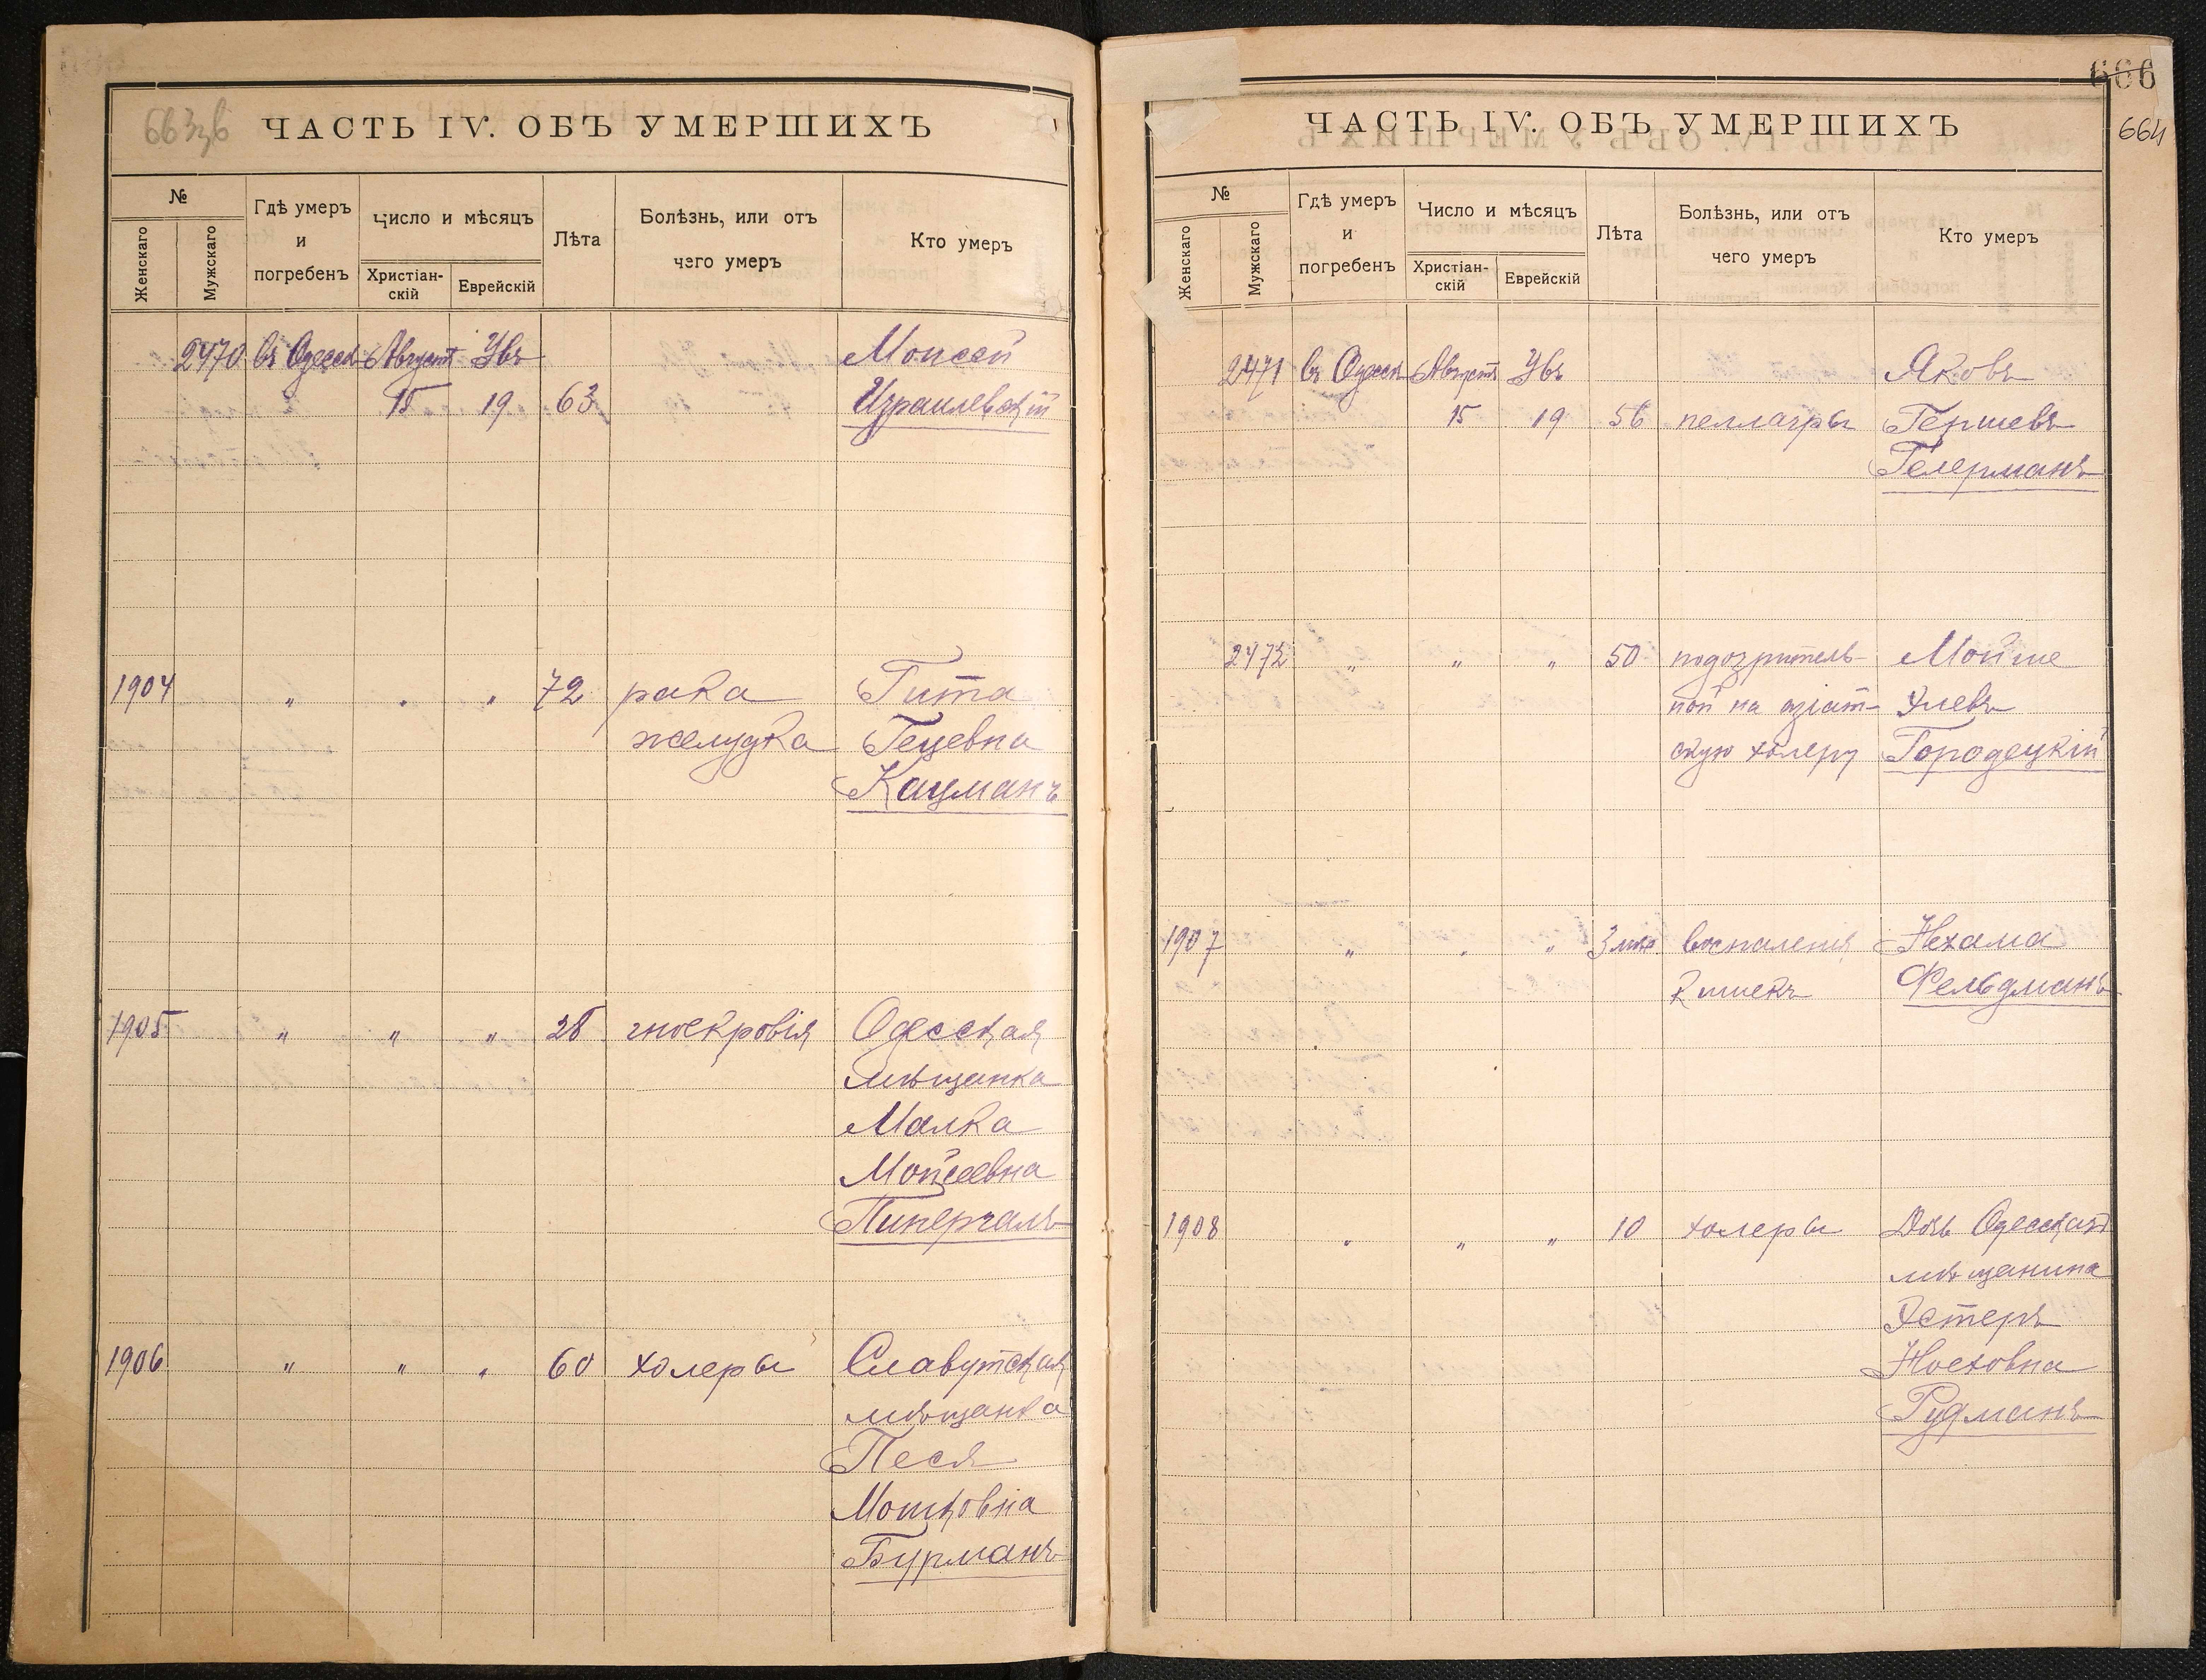 663зв
ЧАСТЬ IV. ОБЪ УМЕРШИХЪ
№
Женскаго
Мужскаго
Гдѣ умеръ и погребенъ
Число и мѣсяцъ
Христіан-скій
Еврейскій
Лѣта
Болѣзнь, или отъ чего умеръ
Кто умеръ
2470 въ Одессѣ Августъ Увъ Моисей
15 19 63 Израилевскій
1904 " " " 72 рака Гита
желудка Гецевна
Кацманъ
1905 " " " 28 гноекровія Одесская
мѣщанка
Малка
Мойсеевна
1906 " " " 60 холеры Славутская
мѣщанка
Песя
Мошковна
Бурманъ
666
664
ЧАСТЬ IV. ОБЪ УМЕРШИХЪ
№
Женскаго
Мужскаго
Гдѣ умеръ и погребенъ
Число и мѣсяцъ
Христіан-скій
Еврейскій
Лѣта
Болѣзнь, или отъ чего умеръ
Кто умеръ
2471 въ Одессѣ Августъ Увъ Яковъ
15 19 56 пеллагры Гершевъ
Гелерманъ
2472 " " " 50 подозритель- Мойше
ной на азіат- Элевъ
скую холеру Городецкій
1907 " " " 3 мѣс. воспаленія Нехама
кишекъ Фельдманъ
1908 " " " 10 холеры Дочь Одесскаго
мѣщанина
Эстеръ
Ноеховна
Рудманъ